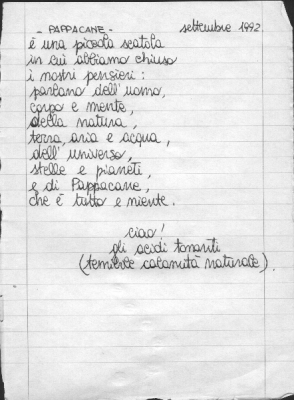 - PAPPACANE -    settembre 1992.
è una piccola scatola
in cui abbiamo chiuso
i nostri pensieri:
parlano dell'uomo,
corpo e mente,
della natura,
terra, aria e acqua,
dell'universo,
stelle e pianeti,
e di Pappacane,
che è tutto e niente.
ciao!
gli acidi tonanti
(temibile calamità naturale).